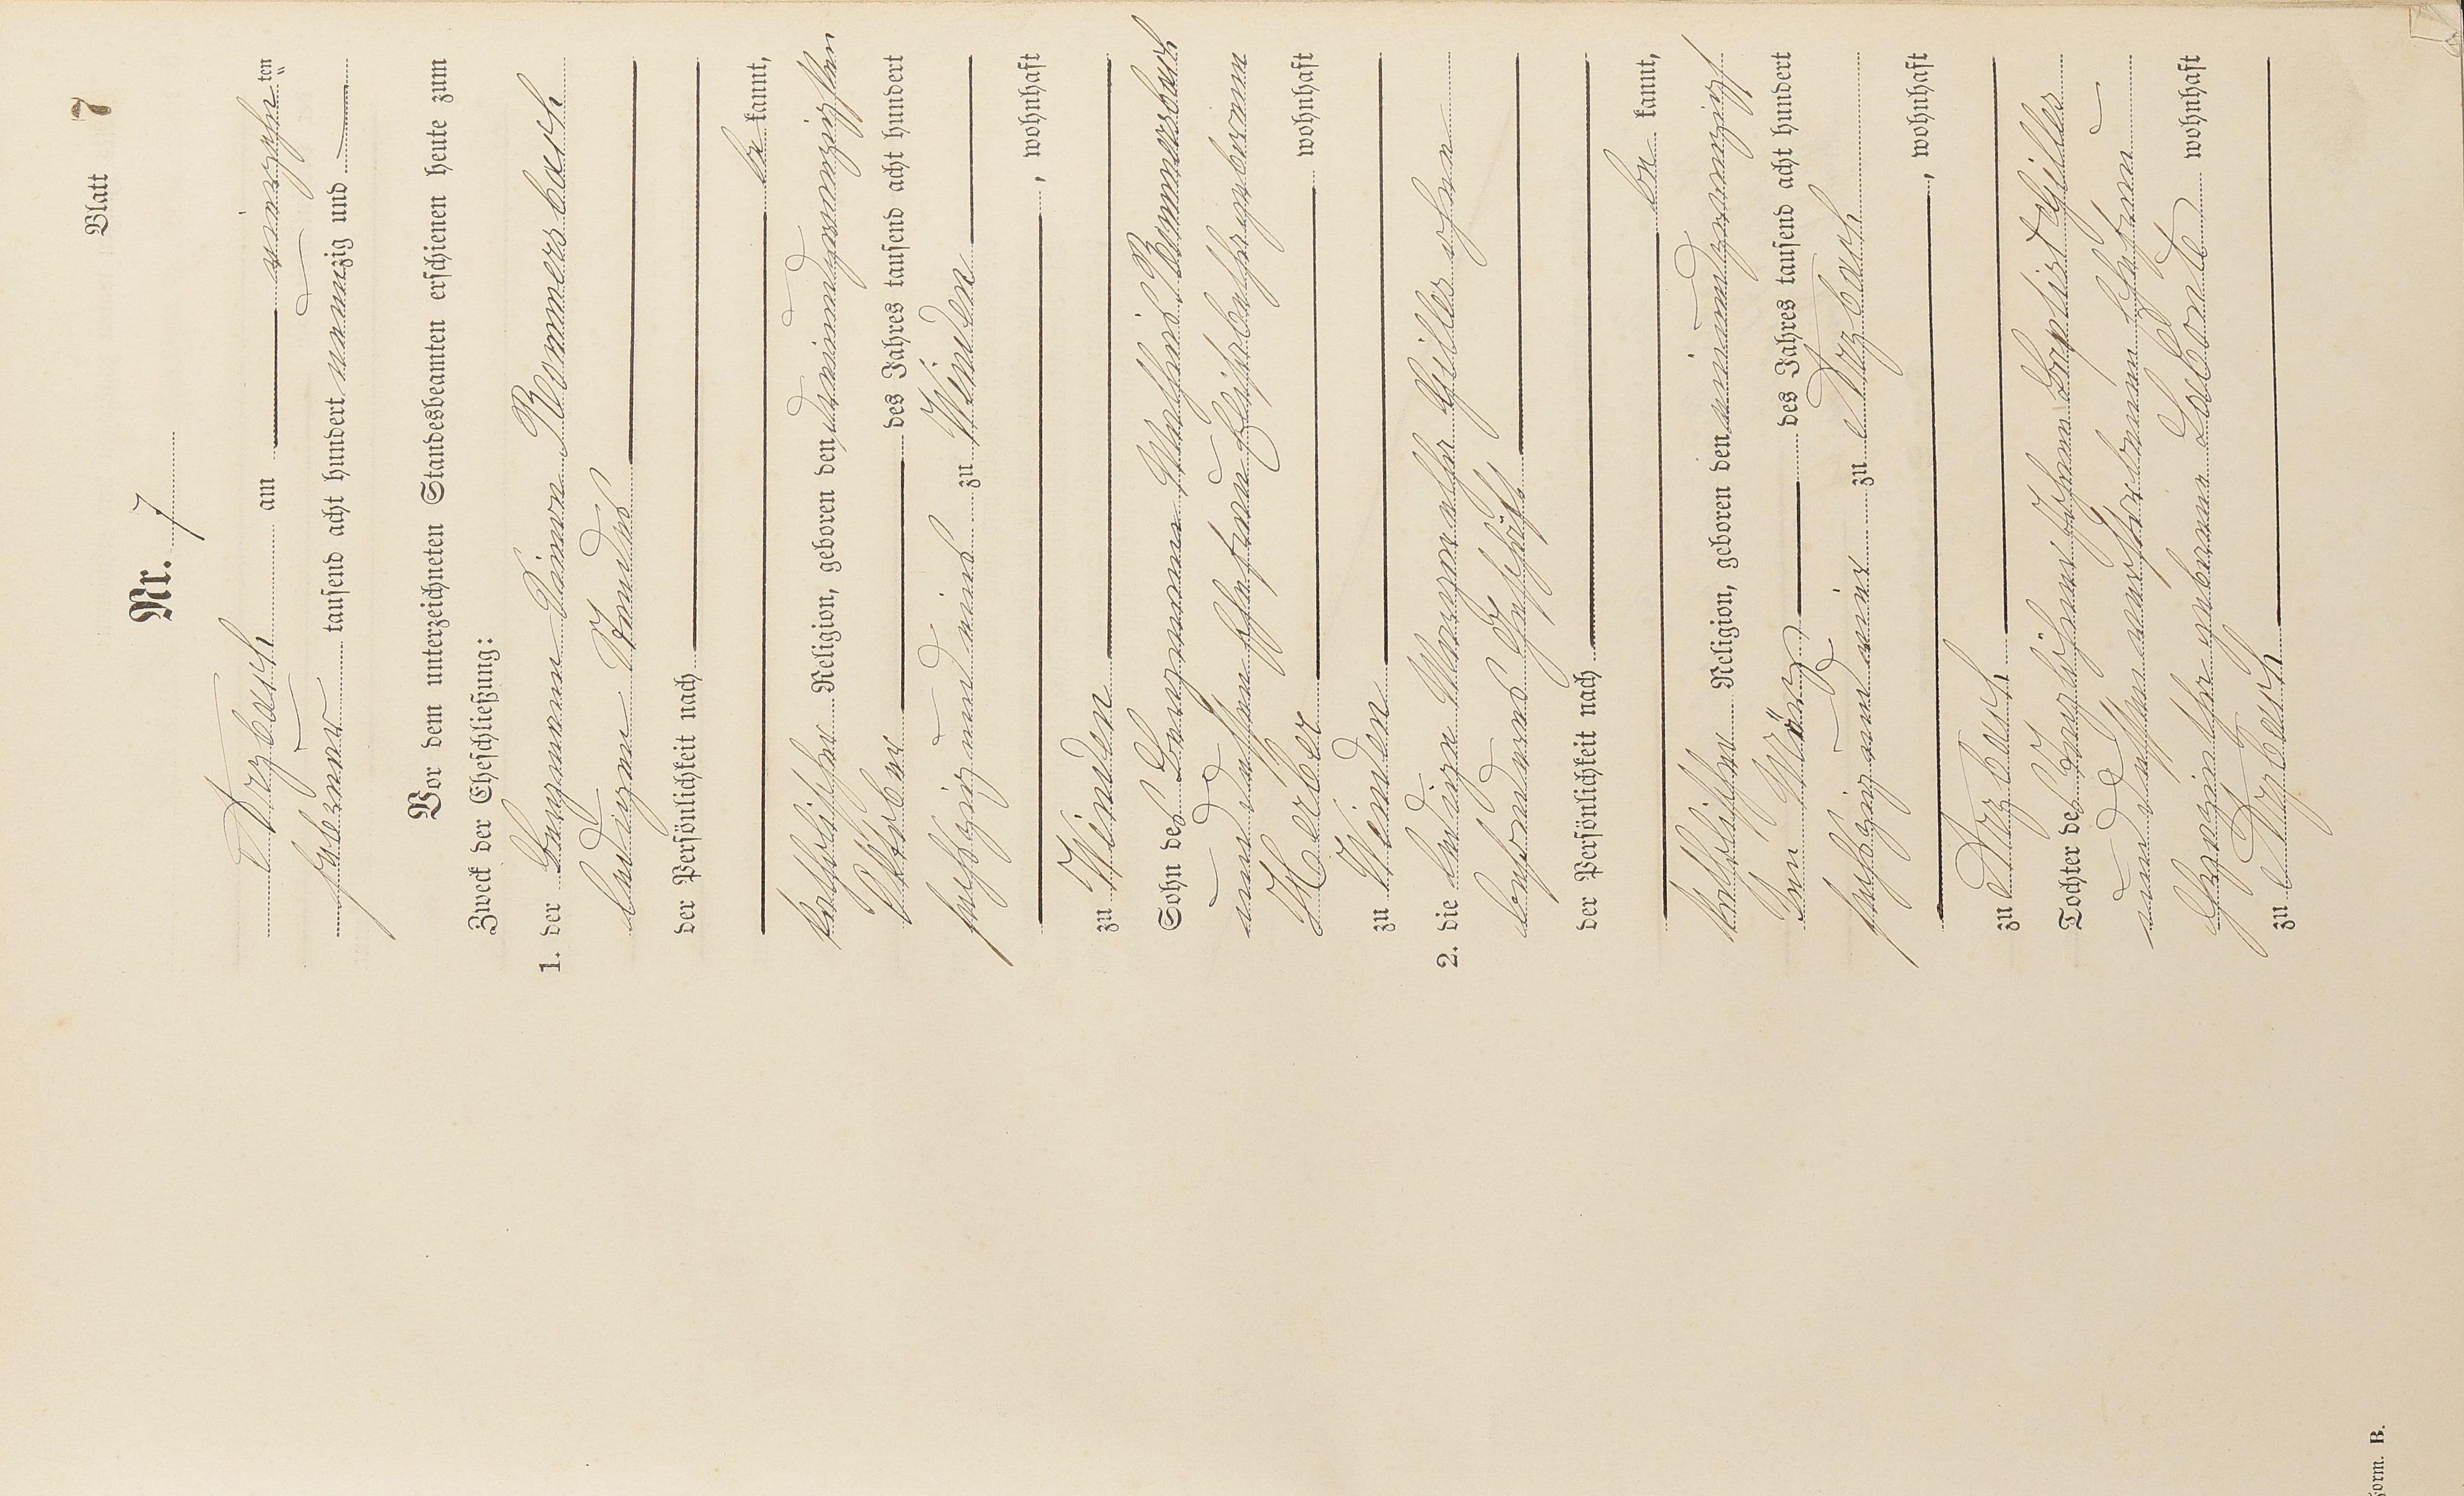 Blatt 7
Nr. 7
Arzbach am vierzehnten
Februar tausend acht hundert neunzig und
Vor dem unterzeichneten Standesbeamten erschienen heute zum
Zweck der Eheschließung:
1. der Bergmann Simon Rommersbach
ledigen Standes
der Persönlichkeit nach
be kannt,
katholischer Religion, geboren den dreiundzwanzigsten
Oktober des Jahres tausend acht hundert
sechszig und eins zu Winden
, wohnhaft
zu Winden
Sohn des Bergmanns Mathias Rommersbach
und dessen Ehefrau Elisabetha geborenen
Herber wohnhaft
zu Winden
2. die ledige Margaretha Gilles ohne
besonderes Geschäft
der Persönlichkeit nach
be kannt,
katholischer Religion, geboren den einundzwanzigst
en März des Jahres tausend acht hundert
sechszig und vier zu Arzbach
, wohnhaft
zu Arzbach
Tochter des Taglöhners Johann Baptist Gilles
und dessen verstorbenen Ehefrau
geborene LaConte wohnhaft
zu Arzbach
Form. B.